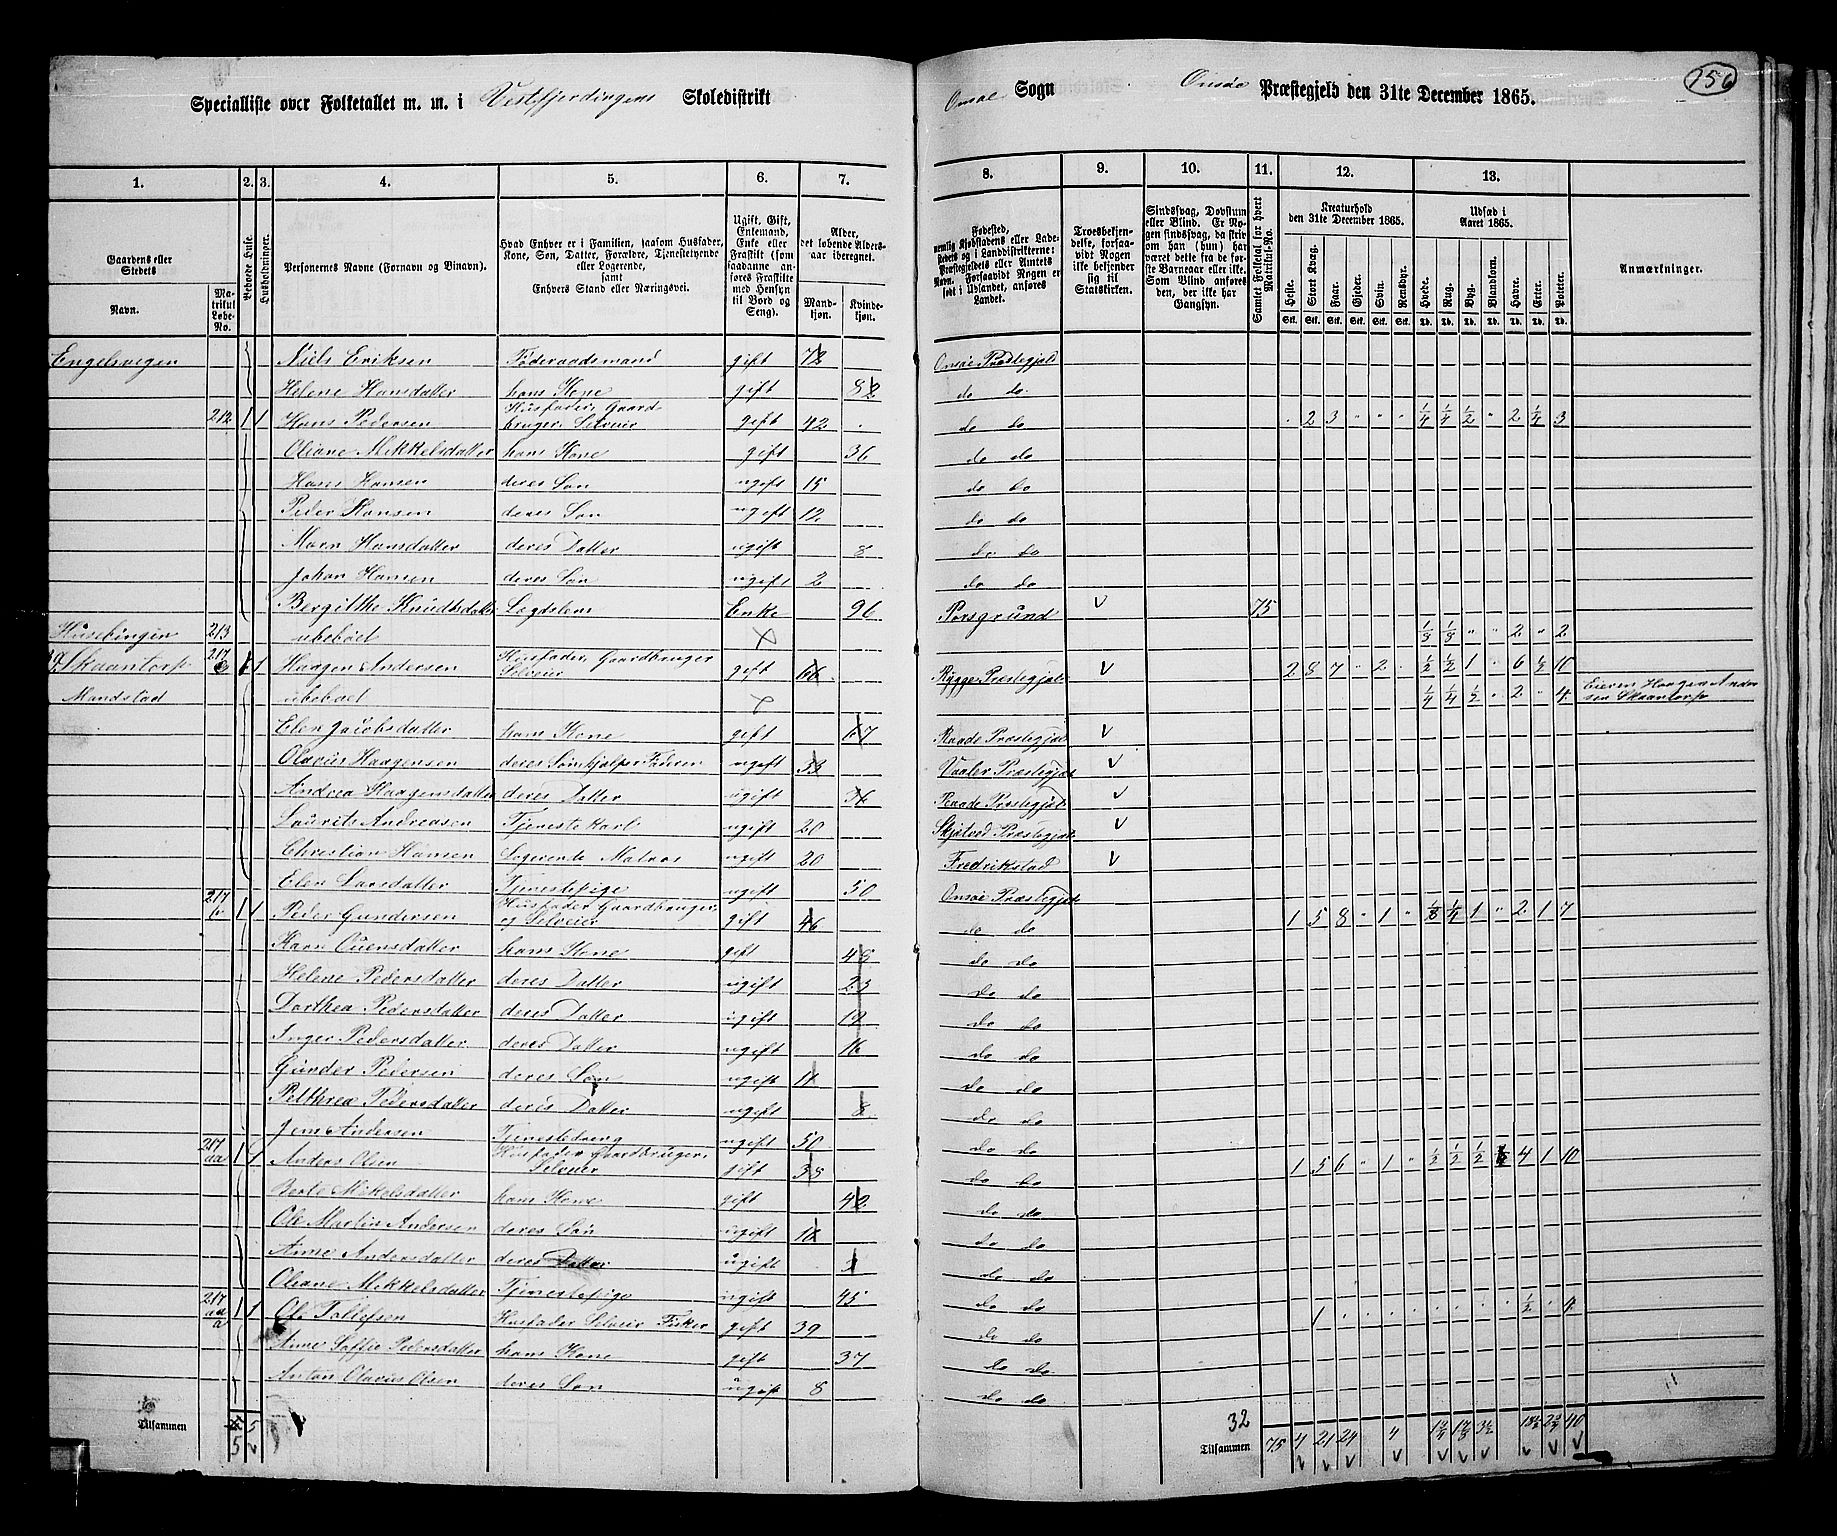 Specialliste over Folketallet m. m. i Vestfjerdingens Skoledistrikt Onsøe Sogn Onsøe Præstegjeld den 31te December 1865.
156
1. 2. 3. 4. 5. 6. 7. 8. 9. 10. 11. 12. 13.
Gaardens eller Stedets
Navn.
Matrikul Løbe-No.
Beboede Huse.
Husholdninger.
Personernes Navne (Fornavn og Binavn).
Hvad Enhver er i Familien, saasom Husfader, Kone, Søn, Datter, Forældre, Tjenestetyende eller Logerende, samt Enhvers Stand eller Næringsvei.
Ugift, Gift, Enkemand, Enke eller Fraskilt (som saadanne anføres Fraskilte med Hensyn til Bord og Seng).
Alder, det løbende Aldersaar iberegnet.
Mandkjøn.
Kvindekjøn.
Fødested, nemlig Kjøbstadens eller Ladestedets og i Landdistrikterne: Præstegjeldets eller Amtets Navn. Forsaavidt Nogen er født i Udlandet, anføres Landet.
Troesbekjendelse, forsaavidt Nogen ikke bekjender sig til Statskirken.
Sindssvag, Døvstum eller Blind. Er Nogen sindssvag, da skrives om han (hun) har været dette fra de første Barneaar eller ikke. Som Blind anføres den, der ikke har Gangsyn.
Samlet Folketal for hvert Matrikul-No.
Kreaturhold den 31te December 1865.
Heste. Stort Kvæg. Faar. Gjeder. Svin. Rensdyr.
Udsæd i Aaret 1865.
Hvede. Rug. Byg. Blandkorn. Havre. Erter. Poteter.
Anmærkninger.
Engelsvigen Niels Eriksen Føderaadsmand gift 72 Onsøe Præstegjæld
Helene Hansdatter hans Kone gift 82 do do
212 1 1 Hans Pedersen Husfader, Gaardbruger, Selveier gift 42 do do 2 3 " " " 1/4 1/4 1/2 " 2 1/4 3
Oliane Mikkelsdatter hans Kone gift 36 do do
Hans Hansen deres Søn ugift 15 do do
Peder Hansen deres Søn ugift 12 do do
Maren Hansdatter deres Datter ugift 8 do do
Johan Hansen deres Søn ugift 2 do do
Bergithe Knudtsdatter Lægdslem Enke 96 Porsgrund 75
Husebingen 213 ubeboet 1/8 1/8 " " 2 " 2
Skaantorp 217 1 Haagen Andersen Husfader Gaardbruger Selveier gift 66 Rygge Præstegjæld 2 8 7 " 2 1/2 1/2 1 " 6 1/2 10
Mandstad ubeboet 1/4 1/4 1/2 " 2 " 4 Eieren Haagen Andersen Skaantorp
Elen Jacobsdatter hans Kone gift 67 Raade Præstegjæld
Olavus Haagensen deres Søn hjælper Faderen ugift 33 Vaaler Præstegjæld
Andrea Haagensdatter deres Datter ugift 36 Raade Præstegjæld
Laurits Andreasen Tjenestekarl ugift 20 Skjeberg Præstegjæld
Christian Hansen Logerende Matros ugift 20 Fredrikstad
Elen Larsdatter Tjenestepige ugift 50 Onsøe Præstegjæld
217 b 1 1 Peder Gundersen Husfader Gaardbruger og Selveier gift 46 do do 1 5 8 " 1 " 1/8 1/4 1 " 2 1 7
Karen Ouensdatter hans Kone gift 48 do do
Helene Pedersdatter deres Datter ugift 23 do do
Dorthea Pedersdatter deres Datter ugift 19 do do
Inger Pedersdatter deres Datter ugift 16 do do
Gunder Pedersen deres Søn ugift 11 do do
Pethrea Pedersdatter deres Datter ugift 8 do do
Jens Andersen Tjenestedreng ugift 50 do do
217 da 1 1 Anders Olsen Husfader Gaardbruger, Selveier gift 38 do do 1 5 6 " 1 " 1/2 1/2 1/2 4 1 10
Berte Mikelsdatter hans Kone gift 42 do do
Ole Martin Andersen deres Søn ugift 12 do do
Anne Andersdatter deres Datter ugift 3 do do
Oliane Mikkelsdatter Tjenestepige ugift 45 do do
217 aa a 1 1 Ole Tollefsen Husfader Selveier Fisker gift 39 do do 1 1/2 4
Anne Soffie Pedersdatter hans Kone gift 37 do do
Anton Olavus Olsen deres Søn ugift 8 do do
Tilsammen 5 5
32
Tilsammen 75 4 21 24 4 1 3/4 3 1/2 18 1/2 2 3/4 40